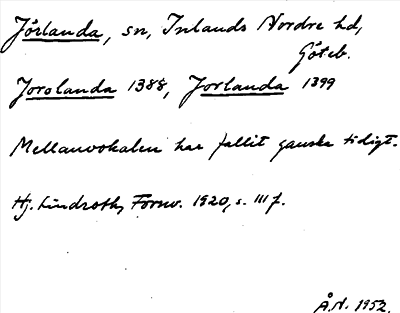 Jörlanda, sn, Inlands Nordre hd,
Göteb.
Jorolanda 1388, Jorlanda 1399
Mellanvokalen har fallit ganska tidigt.
Hj. Lindroth, Fornv. 1920, s. 111 f.
Å.N. 1952.